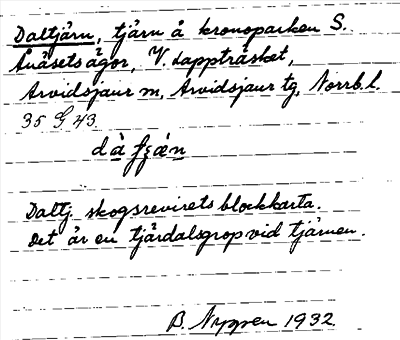 Daltjärn, tjärn å kronoparken S.
Avåsets ägor, V. Lappträsket,
Arvidsjaur sn, Arvidsjaur tg, Norrb. l.
35 G 43
Daltj. skogsrevirets blockkarta.
Det är en tjärdalsgrop vid tjärnen.
B. Nyppen 1932.